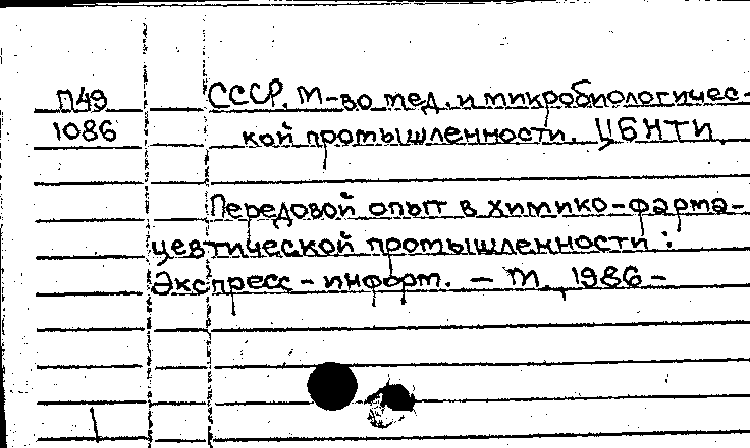 П49
1086
СССР. М-во мед. и микробиологичес-
кой промышленности. ЦБНТИ.
Передовой опыт в химико-фарма-
цевтической промышленности:
Экспресс-информ. – М., 1986 –